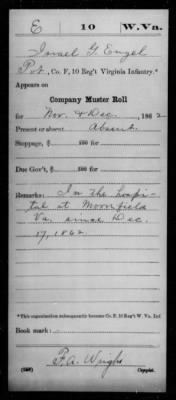 E 10 W. Va.
Israel G. Engel
Pvt., Co. F, 10 Reg't Virginia Infantry.*
Appears on
Company Muster Roll
for Nov. & Dec., 1862
Present or absent Absent.
Stoppage, $ 100 for
Due Gov't, $ 100 for
Remarks: In the hospi-
tal at Moorefield
Va. since Dec.
17, 1862
*This organization subsequently became Co. E, 10 Reg't W. Va. Inf.
Book mark:
F. A. Wright
(358) Copyist.